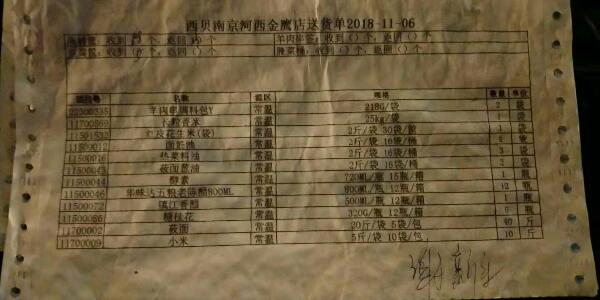 西贝南京河西金鹰店送货单2018-11-06
收到 个，返回 个 羊肉串签：收到（）个，返回（）个
收到 个，返回 个 收到（）个，返回（）个
名称 温区 规格 数量 单位
22300335 羊肉串调料包Y 常温 218G/袋 2 袋
11700869 香米 常温 25kg/袋 1 袋
11501532 红皮花生米(袋) 常温 2斤/袋 30袋/箱 1 袋
11500012 面筋油 常温 2斤/袋 16袋/桶 袋
11500016 热菜料油 常温 2斤/袋 16袋/桶 3 袋
11500043 莜面葱油 常温 2斤/袋 16袋/桶 2 袋
11500044 酵素 常温 720ML/瓶 15瓶/箱 1 瓶
11500046 味达五粮老陈醋800ML 常温 800ML/瓶 12瓶/箱 12 瓶
11500072 镇江香醋 常温 500ML/瓶 12瓶/箱 1 瓶
11500086 糖桂花 常温 320G/瓶 12瓶/箱 瓶
11700002 莜面 常温 20斤/袋 5袋/包 40 斤
11700009 小米 常温 5斤/袋 10袋/包 10 斤